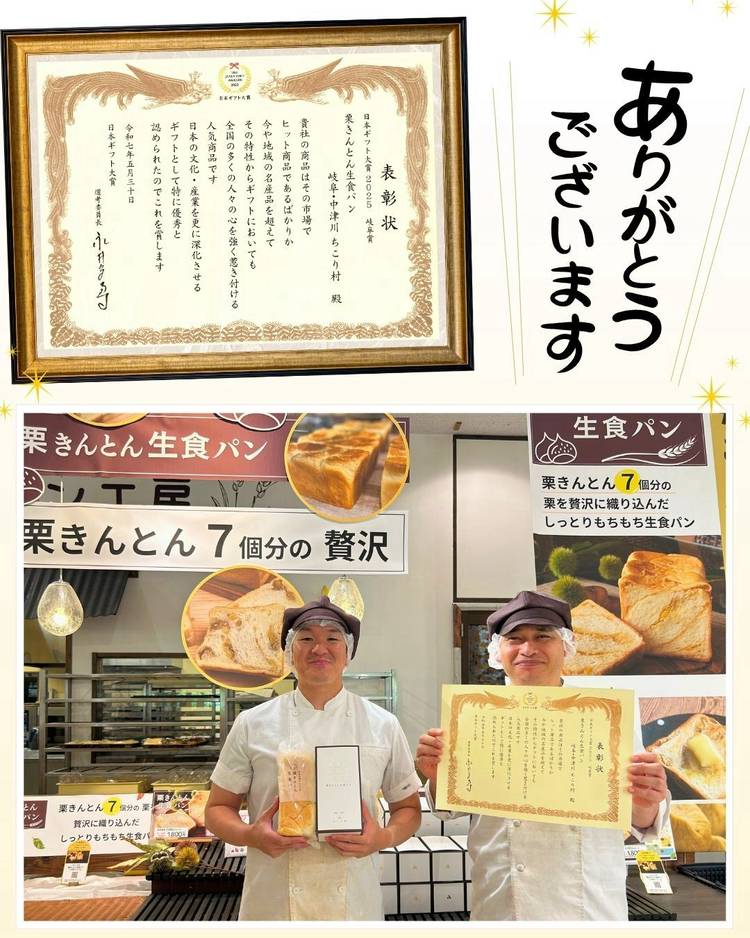 ありがとう
ございます
日本ギフト大賞
表彰状
日本ギフト大賞2025 岐阜賞
栗きんとん生食パン
岐阜・中津川 ちこり村 殿
貴社の商品はその市場で
ヒット商品であるばかりか
今や地域の名産品を超えて
その特性からギフトにおいても
全国の多くの人々の心を強く惹き付ける
人気商品です
日本の文化・産業を更に深化させる
ギフトとして特に優秀と
認められたのでこれを賞します
令和七年五月三十日
日本ギフト大賞
選考委員長
栗きんとん生食パン
ン工房
栗きんとん7個分の 贅沢
生食パン
栗きんとん7個分の
栗を贅沢に織り込んだ
しっとりもちもち生食パン
表彰状
岐阜・中津川 ちこり村 殿
栗きんとん7個分の 栗
贅沢に織り込んだ
しっとりもちもち生食パ
1800